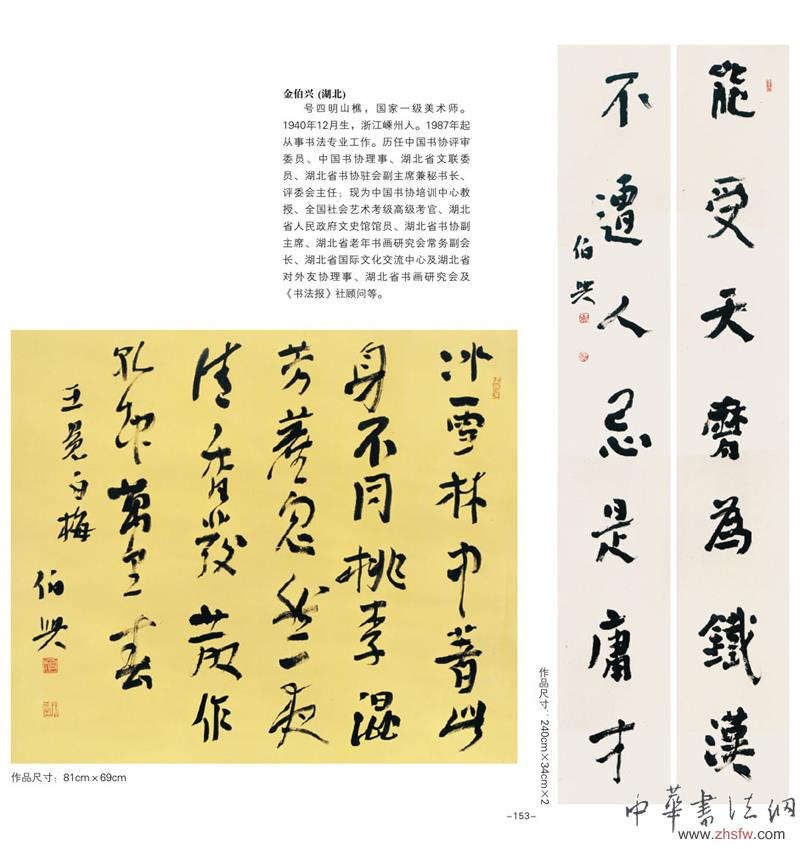 金伯兴 (湖北)
号四明山樵，国家一级美术师。
1940年12月生，浙江嵊州人。1987年起
从事书法专业工作。历任中国书协评审
委员、中国书协理事、湖北省文联委
员、湖北省书协驻会副主席兼秘书长、
评委会主任；现为中国书协培训中心教
授、全国社会艺术考级高级考官、湖北
省人民政府文史馆馆员、湖北省书协副
主席、湖北省老年书画研究会常务副会
长、湖北省国际文化交流中心及湖北省
对外友协理事、湖北省书画研究会及
《书法报》社顾问等。
能受天磨為鐵漢
不遭人忌是庸才
伯興
作品尺寸：240cm×34cm×2
冰雪林中著此
身不同桃李混
芳塵忽然一夜
清香發散作
乾坤萬里春
王冕白梅
伯興
作品尺寸：81cm×69cm
-153-
中華書法網
www.zhsfw.com